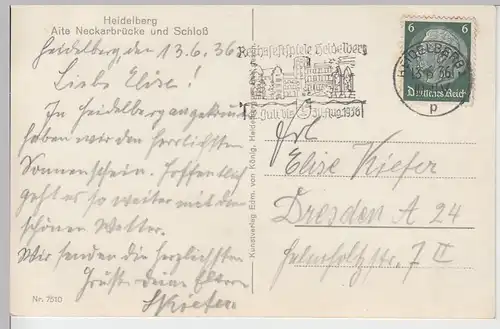 Heidelberg
Alte Neckarbrücke und Schloß
Heidelberg, den 13.6.36
Liebe Elise!
In Heidelberg angekommen
haben wir den herrlichsten
Sonnenschein. Hoffentlich
geht es so weiter mit dem
schönen Wetter.
Wir senden die herzlichsten
Grüße Deine Eltern
Kiefer
Nr. 7510
Kunstverlag Edm. von König, Heidelberg
Reichsfestspiele Heidelberg
Juli bis Aug. 1936
HEIDELBERG
13.6.36
p
6 6
Deutsches Reich
Frl.
Elise Kiefer
Dresden A 24
Helmholtzstr. 7 II